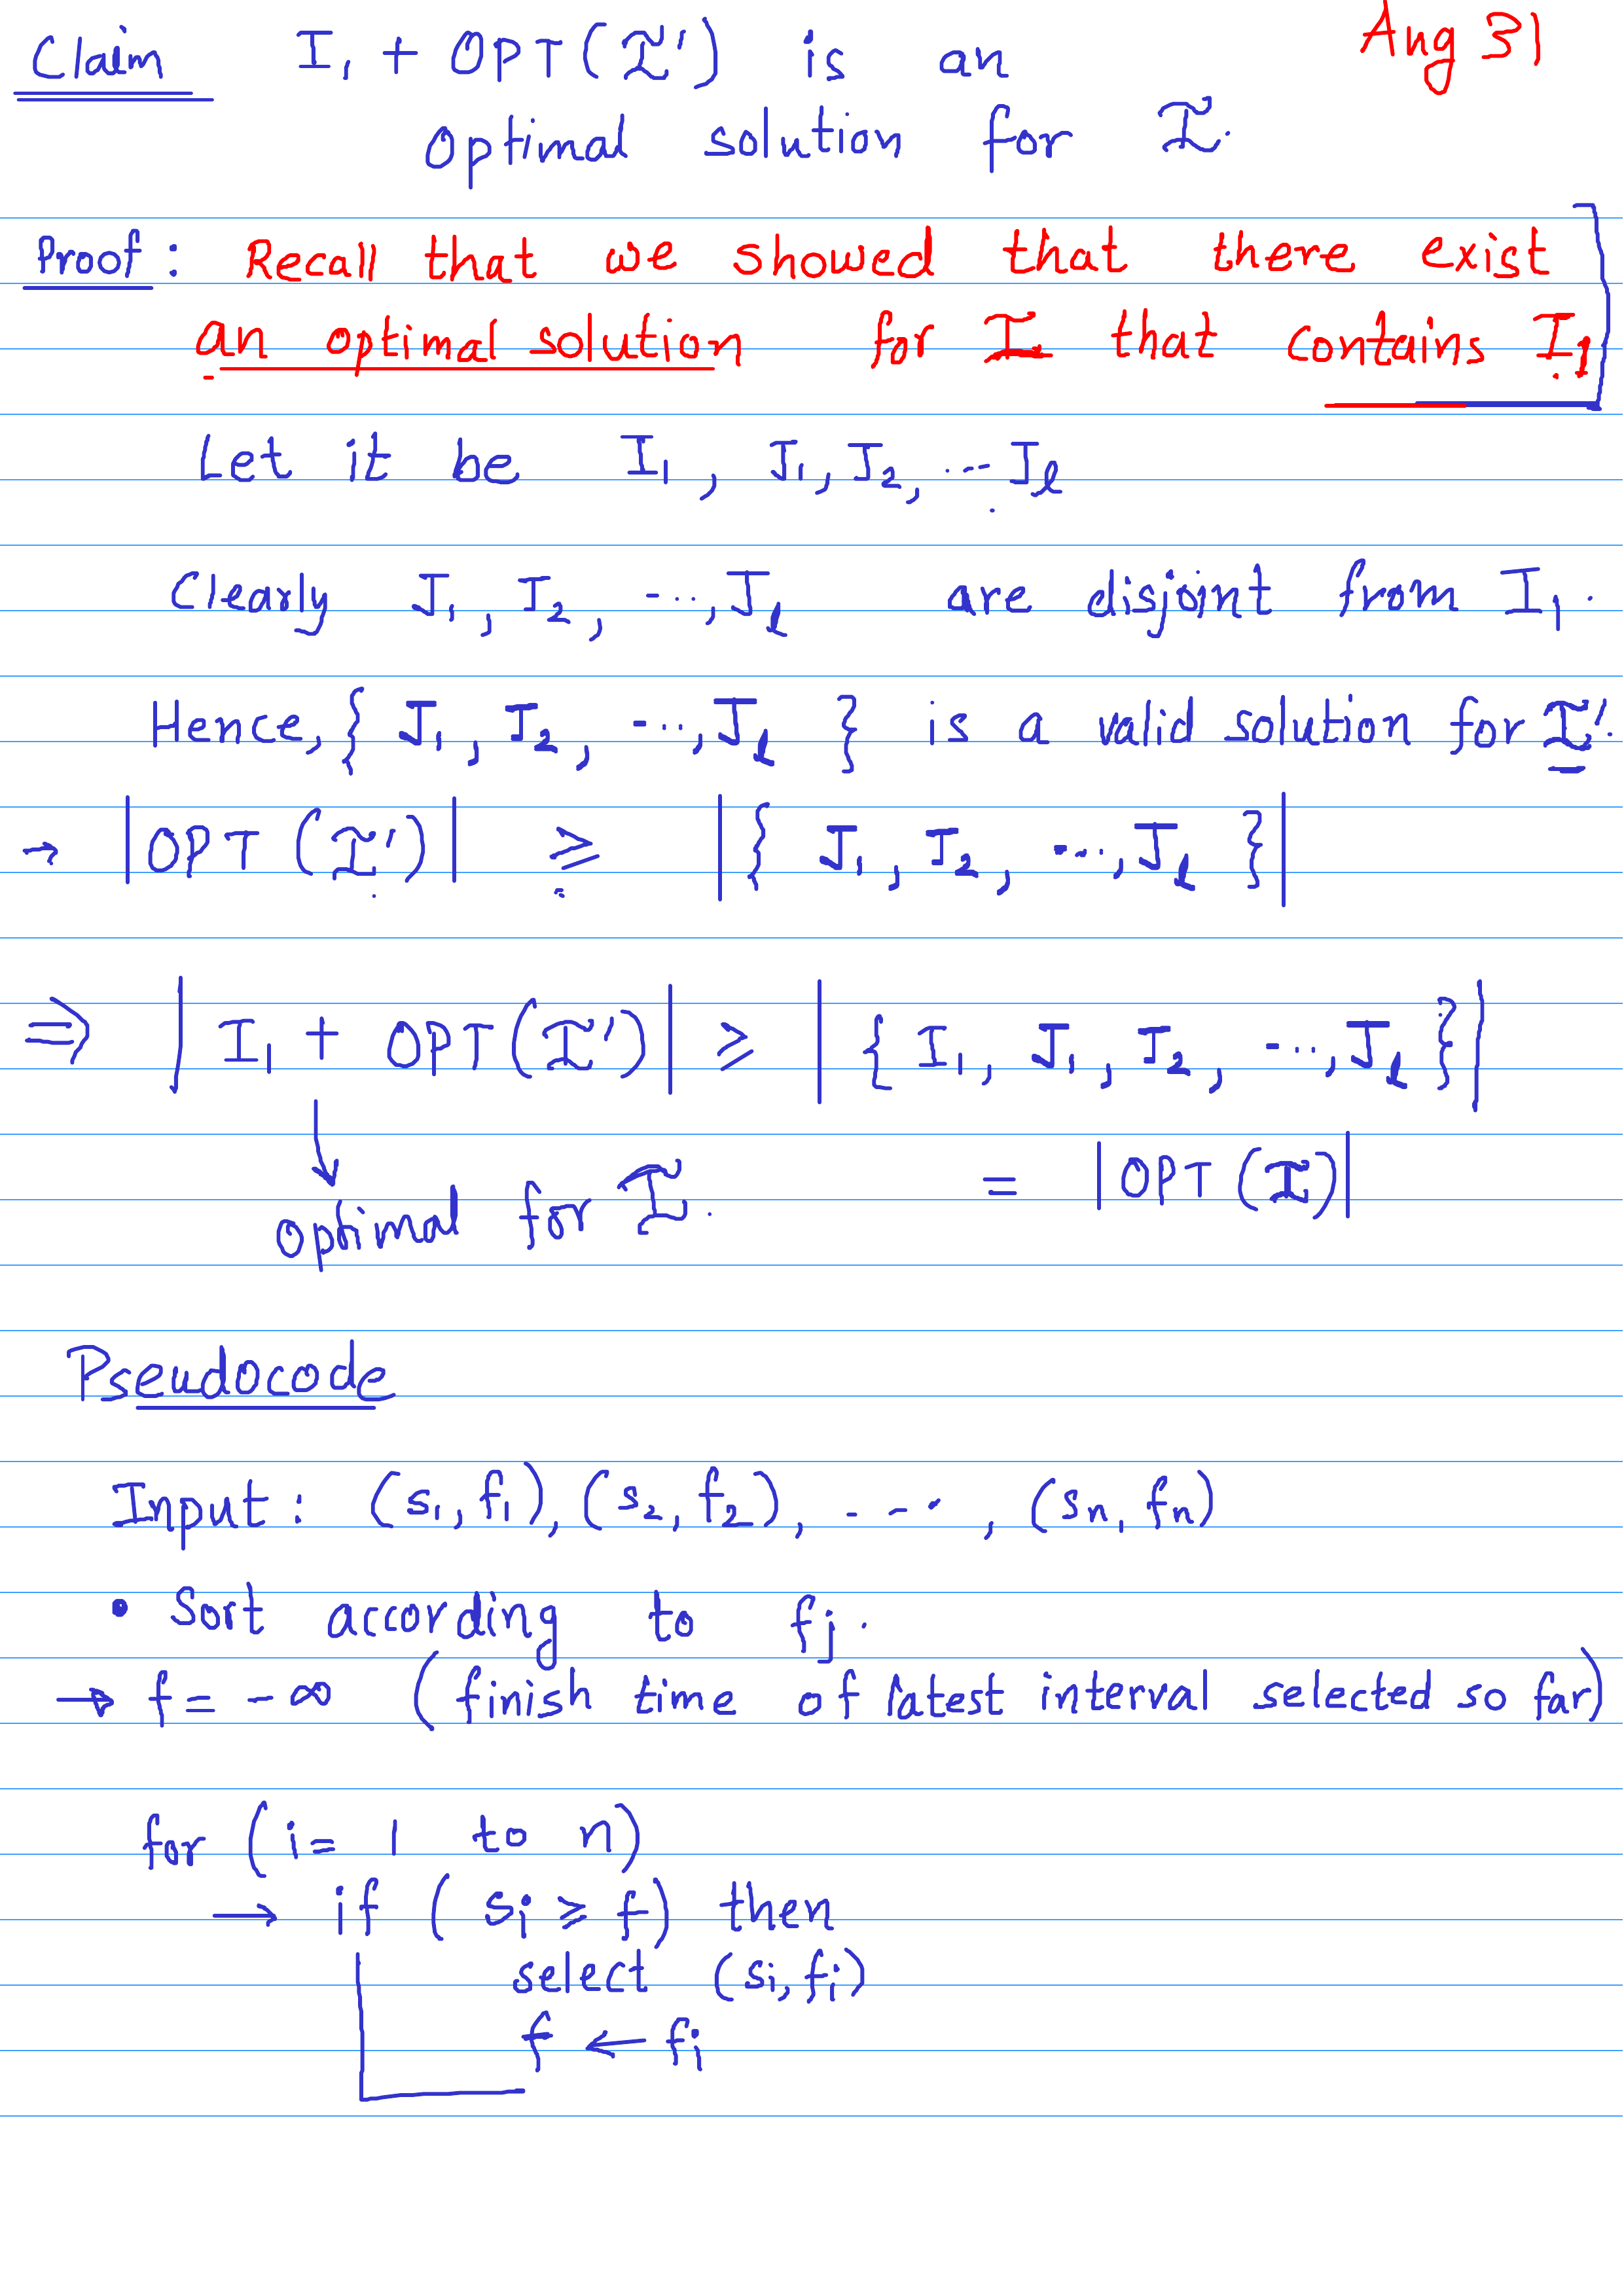 Aug 31
Claim I₁ + OPT(𝓘') is an
optimal solution for 𝓘.
Proof: Recall that we showed that there exist
an optimal solution for 𝓘 that contains I₁
Let it be I₁, J₁, J₂, ... Jₗ
Clearly J₁, J₂, ..., Jₗ are disjoint from I₁.
Hence, { J₁, J₂, ..., Jₗ } is a valid solution for 𝓘'.
→ |OPT (𝓘')| ≥ |{ J₁, J₂, ..., Jₗ }|
⇒ | I₁ + OPT(𝓘') | ≥ | { I₁, J₁, J₂, ..., Jₗ } |
↓
optimal for 𝓘. = |OPT (𝓘)|
Pseudocode
Input: (s₁, f₁), (s₂, f₂), ...., (sₙ, fₙ)
• Sort according to fⱼ.
→ f = -∞ (finish time of latest interval selected so far)
for (i = 1 to n)
→ if ( sᵢ ≥ f) then
select (sᵢ, fᵢ)
f ← fᵢ